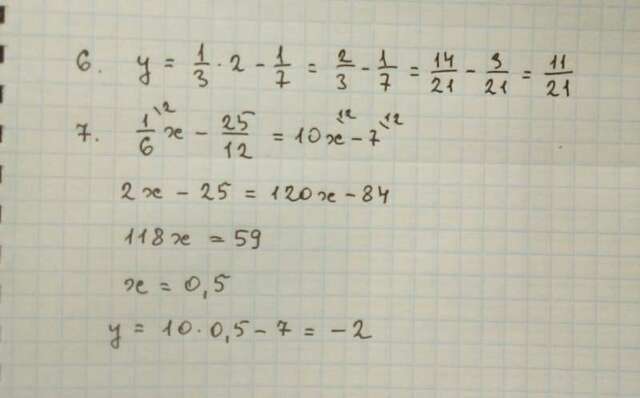 6. y = 1/3 · 2 - 1/7 = 2/3 - 1/7 = 14/21 - 3/21 = 11/21
7. 1/6 \2 x - 25/12 = 10x \12 - 7 \12
2x - 25 = 120x - 84
118x = 59
x = 0,5
y = 10 · 0,5 - 7 = -2